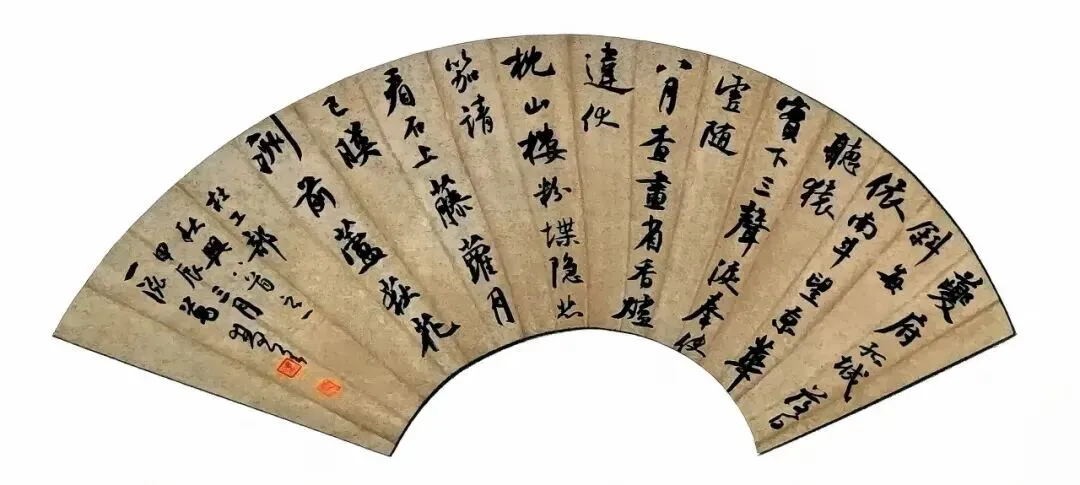 夔府孤城落日
斜每
依南斗望京華
聽猿
實下三聲淚奉使
虛隨
八月查畫省香爐
違伏
枕山樓粉堞隱悲
笳請
看石上藤蘿月
已暎
洲前蘆荻花
杜工部
秋興八首之一
甲辰三月
一泓